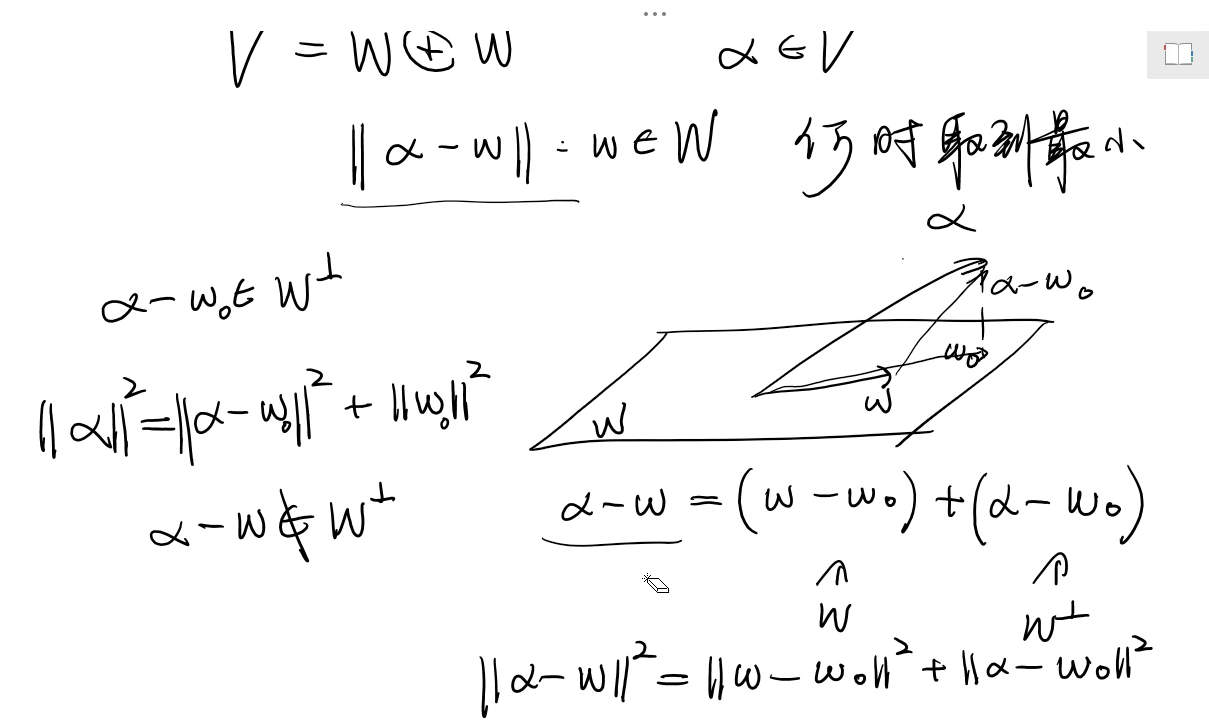 V = W ⊕ W    α ∈ V
‖α - w‖ : w ∈ W    何时取到最小
α
α - w₀ ∈ W^⊥
α - w₀
w₀
w
W
‖α‖² = ‖α - w₀‖² + ‖w₀‖²
α - w ∉ W^⊥
α - w = (w - w₀) + (α - w₀)
↑ ↑
W    W^⊥
‖α - w‖² = ‖w - w₀‖² + ‖α - w₀‖²